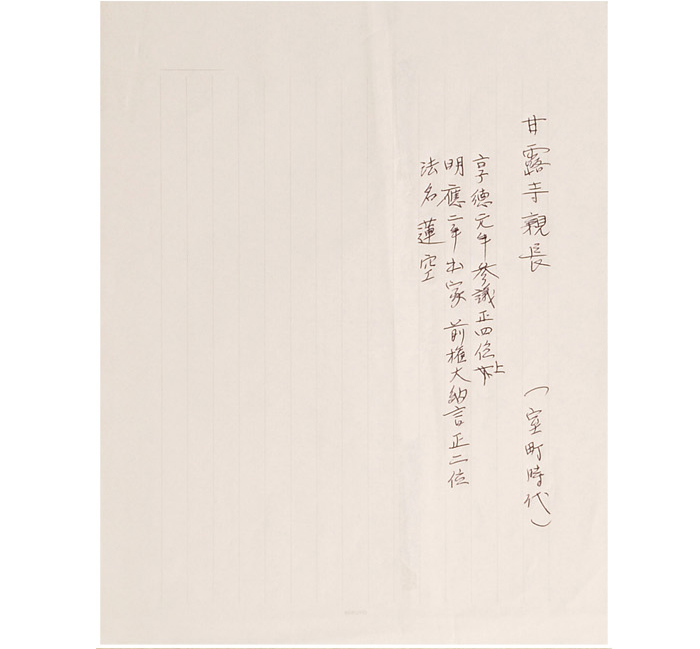 甘露寺親長 (室町時代)
享徳元年参議正四位上
明應二年出家 前権大納言正二位
法名 蓮空